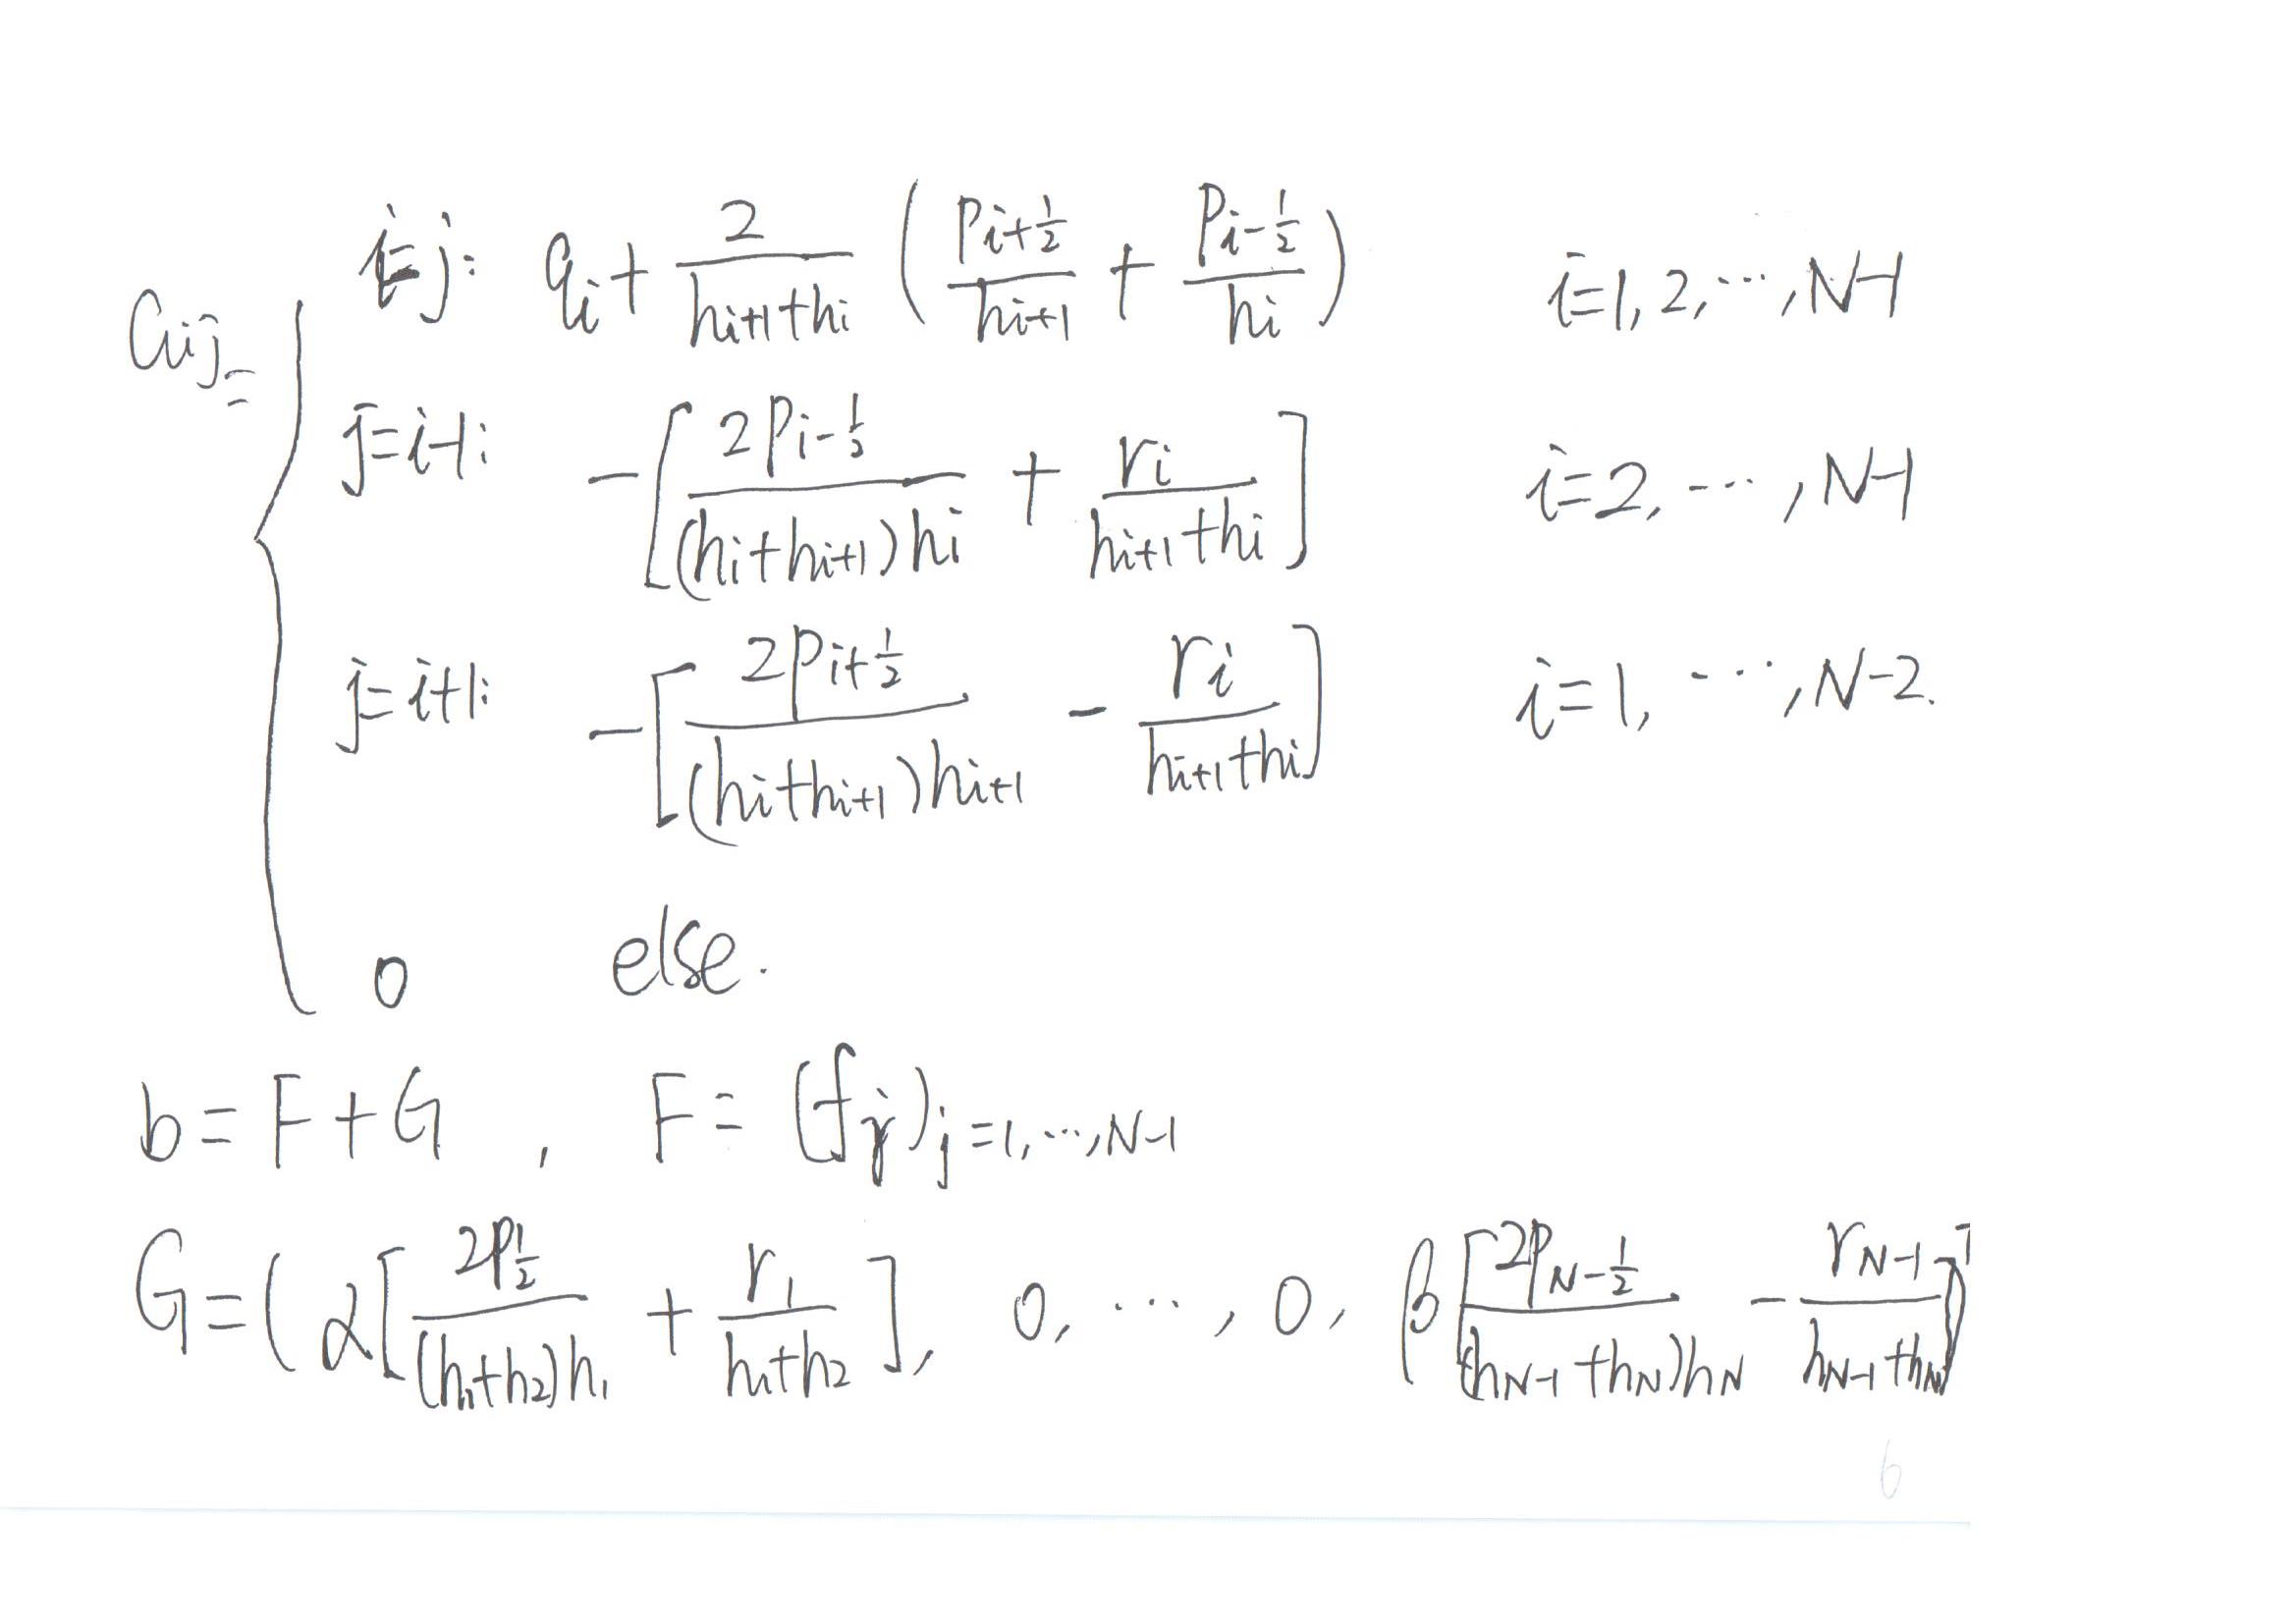 a_{ij} = { i=j: q_i + \frac{2}{h_{i+1}+h_i} ( \frac{p_{i+\frac{1}{2}}}{h_{i+1}} + \frac{p_{i-\frac{1}{2}}}{h_i} ) i=1,2,⋯,N-1
j=i-1: -[ \frac{2p_{i-\frac{1}{2}}}{(h_i+h_{i+1})h_i} + \frac{r_i}{h_{i+1}+h_i} ] i=2,⋯,N-1
j=i+1: -[ \frac{2p_{i+\frac{1}{2}}}{(h_i+h_{i+1})h_{i+1}} - \frac{r_i}{h_{i+1}+h_i} ] i=1,⋯,N-2.
0 else.
b=F+G, F=(f_j)_{j=1,⋯,N-1}
G=(α[ \frac{2p_{\frac{1}{2}}}{(h_1+h_2)h_1} + \frac{r_1}{h_1+h_2} ], 0,⋯,0, β[ \frac{2p_{N-\frac{1}{2}}}{(h_{N-1}+h_N)h_N} - \frac{r_{N-1}}{h_{N-1}+h_N} ])^T
6